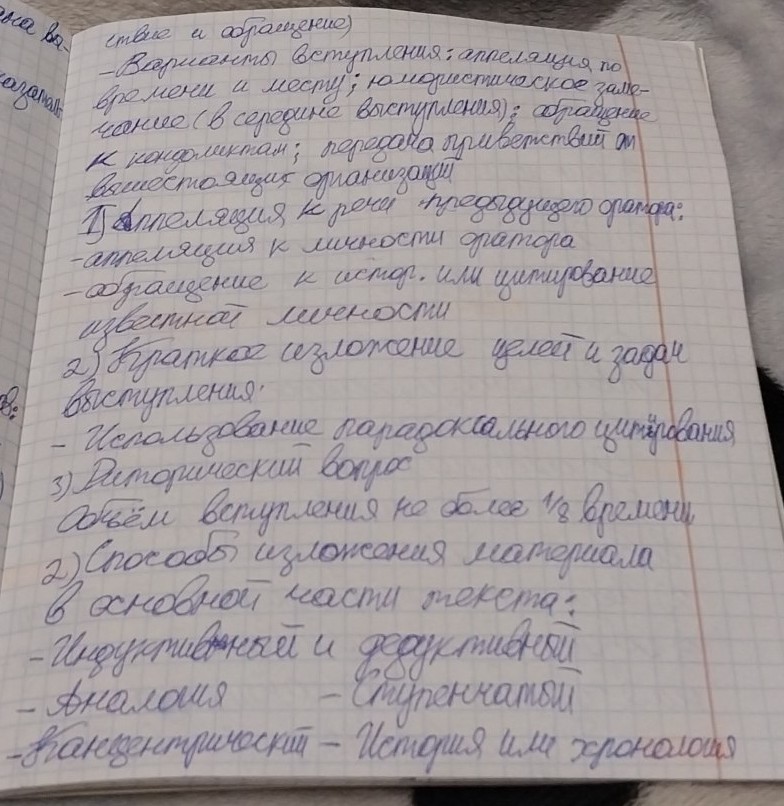 ствие и обращение)
- Варианты вступления: аппеляция по
времени и месту; юмористическое заме-
чание (в середине выступления); обращение
к кондоликтам; передача приветствий от
вышестоящих организаций
1) Аппеляция к речи предыдущего оратора:
- аппеляция к личности оратора
- обращение к истор. или цитирование
известной личности
2) Краткое изложение целей и задач
выступления.
- Использование парадоксального цитирования
3) Риторический вопрос
Объём вступления не более 1/8 времени
2) Способы изложения материала
в основной части текста:
- Индуктивный и дедуктивный
- Аналогия - Ступенчатый
- Канцентрический - История или хронология